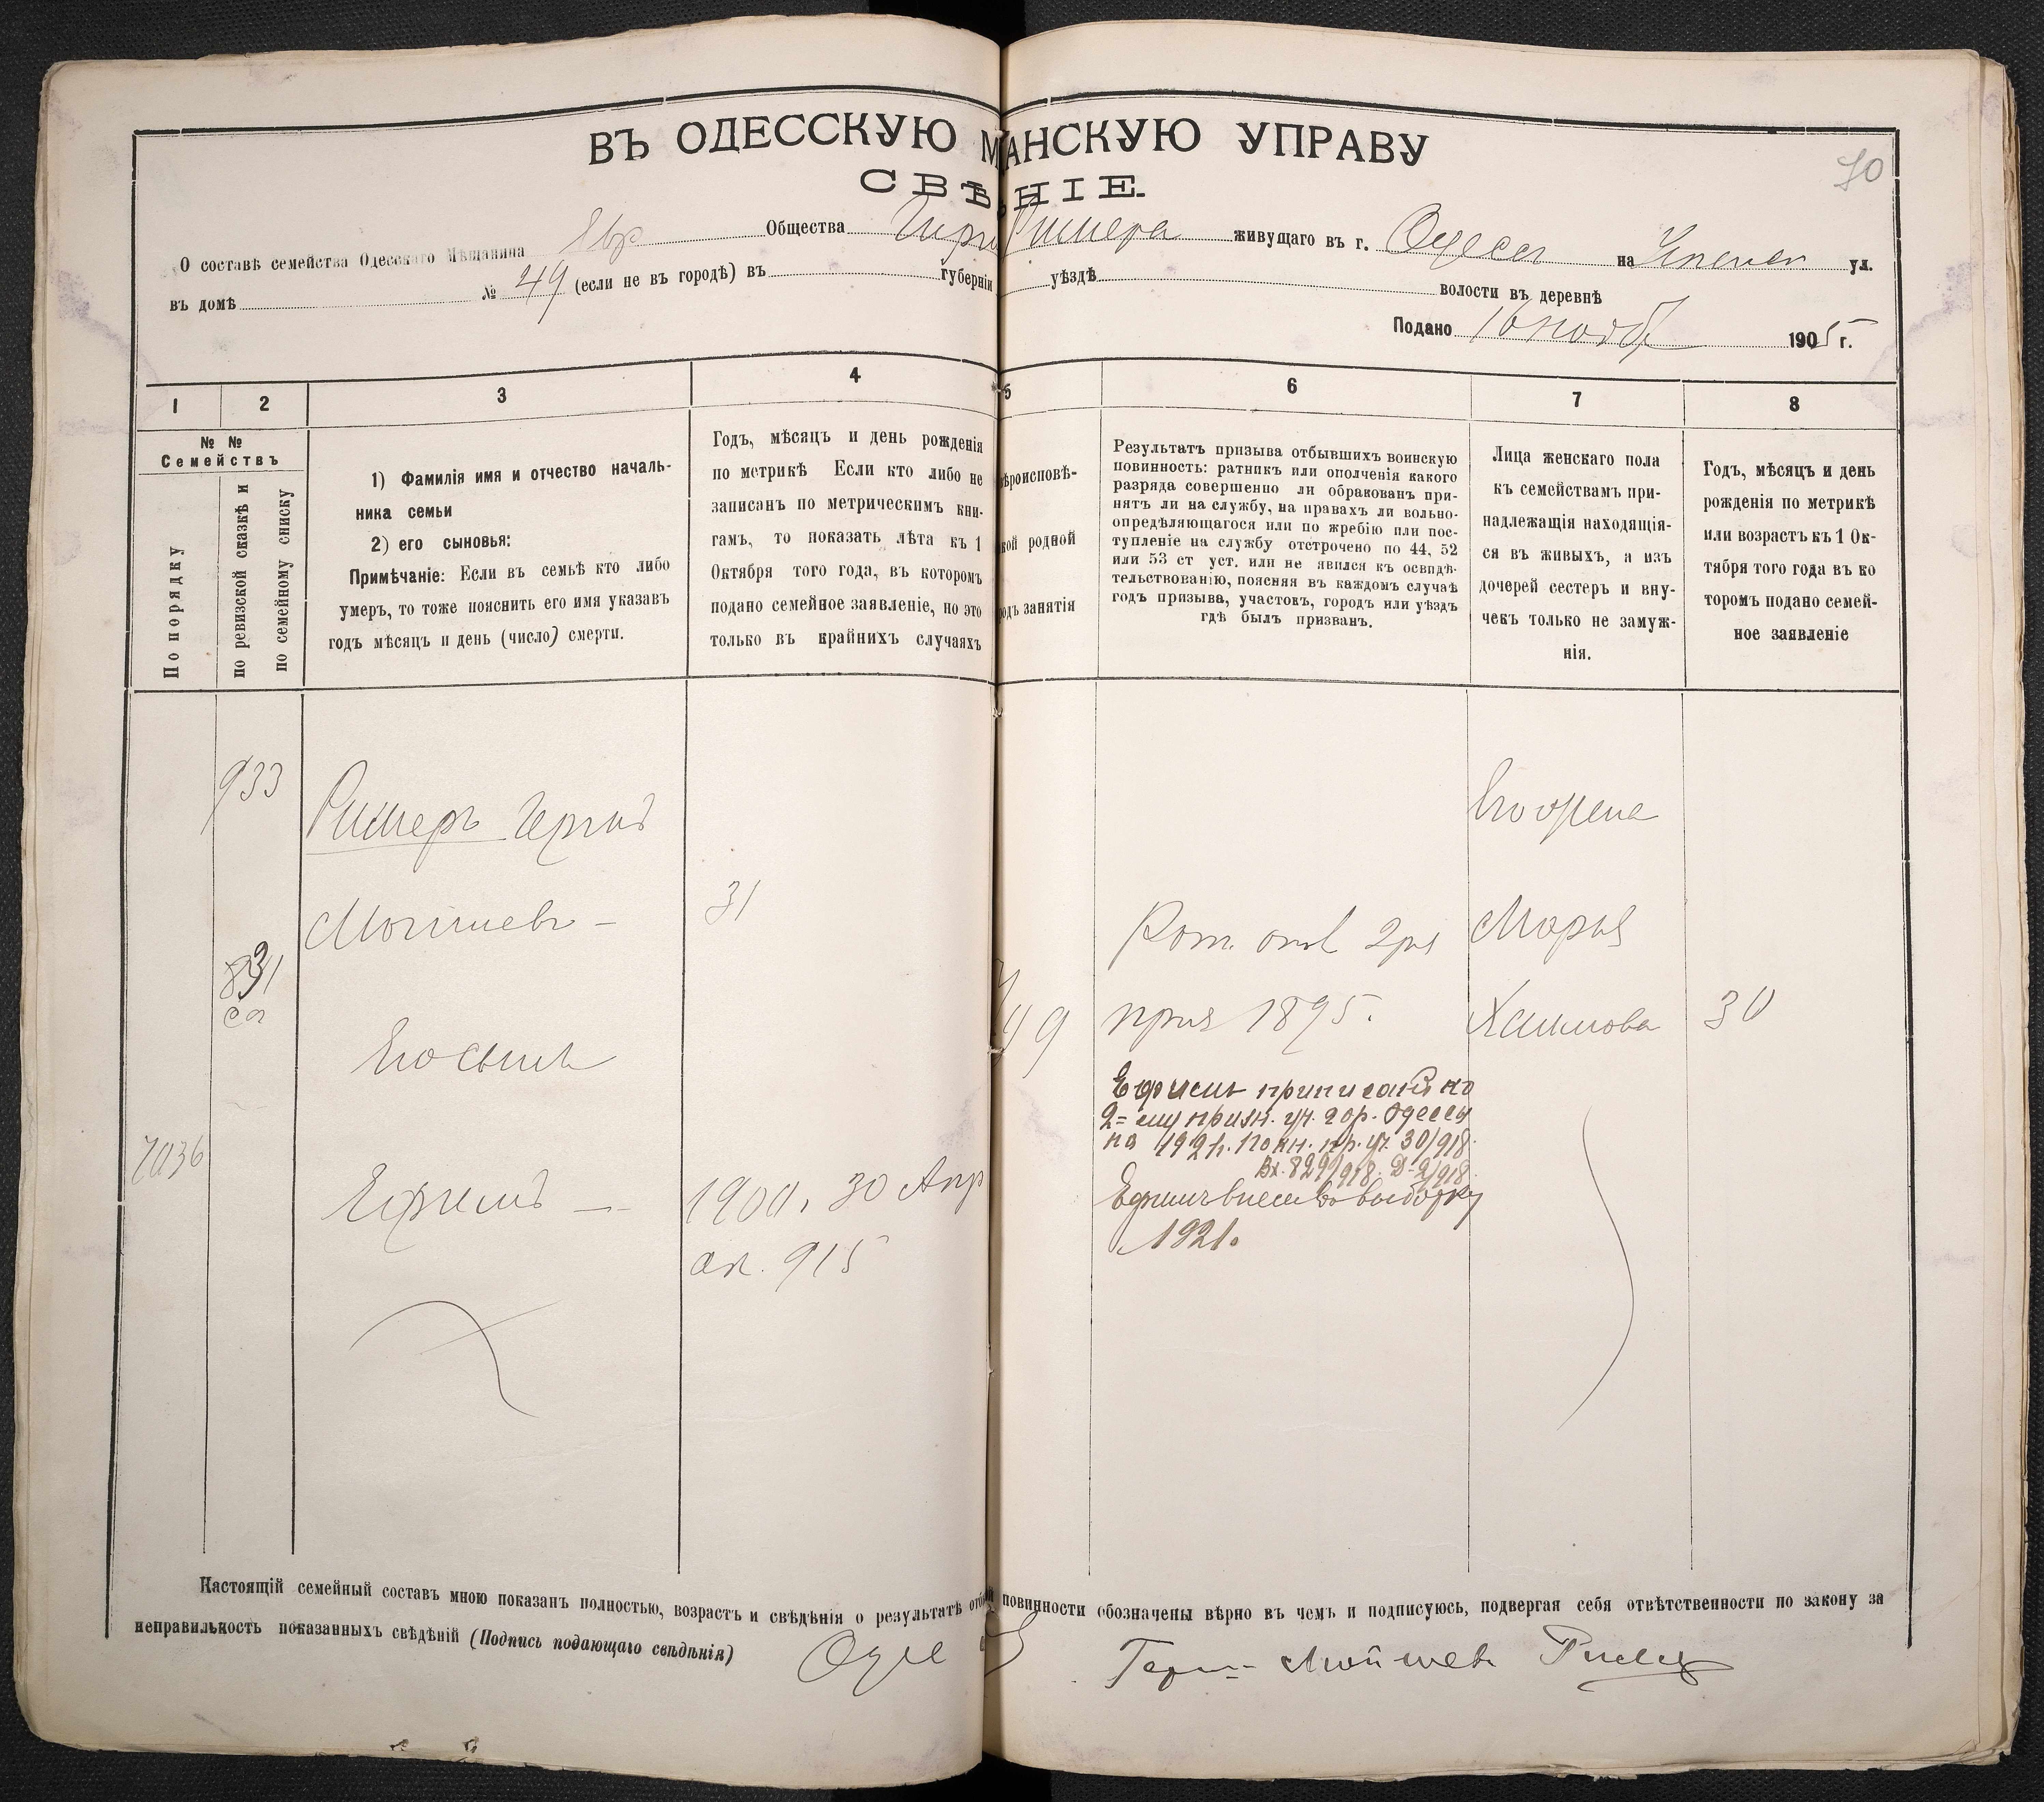 ВЪ ОДЕССКУЮ МАНСКУЮ УПРАВУ
СВѢНІЕ.
70
О составѣ семейства Одесскаго Мѣщанина Евр Общества Римера живущаго въ г. Одесс на ул.
въ домѣ № 49 (если не въ городѣ) въ губерніи уѣздѣ волости въ деревнѣ
Подано 16 нояб 1905 г.
1 2 3 4 5 6 7 8
№ №
Семействъ
По порядку
по ревизской сказкѣ и
по семейному списку
1) Фамилія имя и отчество началь-
ника семьи
2) его сыновья:
Примѣчаніе: Если въ семьѣ кто либо
умеръ, то тоже пояснить его имя указавъ
годъ мѣсяцъ и день (число) смерти.
Годъ, мѣсяцъ и день рожденія
по метрикѣ Если кто либо не
записанъ по метрическимъ кни-
гамъ, то показать лѣта къ 1
Октября того года, въ которомъ
подано семейное заявленіе, но это
только въ крайнихъ случаяхъ
ѣроисповѣ-
кой родной
одъ занятія
Результатъ призыва отбывшихъ воинскую
повинность: ратникъ или ополченія какого
разряда совершенно ли обракованъ при-
нятъ ли на службу, на правахъ ли вольно-
опредѣляющагося или по жребію или пос-
тупленіе на службу отстрочено по 44, 52
или 53 ст уст. или не явился къ освидѣ-
тельствованію, поясняя въ каждомъ случаѣ
годъ призыва, участокъ, городъ или уѣздъ
гдѣ былъ призванъ.
Лица женскаго пола
къ семействамъ при-
надлежащія находящія-
ся въ живыхъ, а изъ
дочерей сестеръ и вну-
чекъ только не замуж-
нія.
Годъ, мѣсяцъ и день
рожденія по метрикѣ
или возрастъ къ 1 Ок-
тября того года въ ко
торомъ подано семей-
ное заявленіе
933 Римеръ Гершъ
Его жена
Мошневъ – 31
Рат. опол 2 раз
Марья
831
са
9
приз 1895.
Хаимова 30
Его сынъ
Ефимъ приписанъ ко
2=му призн. уч. гор. Одессы
на 1921г. по кн. пр. уч 30/918.
Вх. 829/918. Д-2/918.
7036 Ефимъ — 1900, 30 Апр
Ефимъ внесенъ в выборку
1921.
ак. 915
Настоящій семейный составъ мною показанъ полностью, возрастъ и свѣдѣнія о результатѣ отб повинности обозначены вѣрно въ чемъ и подписуюсь, подвергая себя отвѣтственности по закону за
неправильность показанныхъ свѣдѣній (Подпись подающаго свѣдѣнія) Одес Герш Мойшев Ример